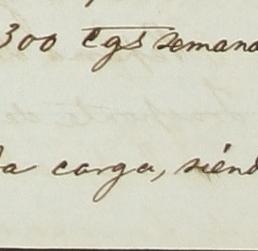 300 Cgs semana
la carga, siend